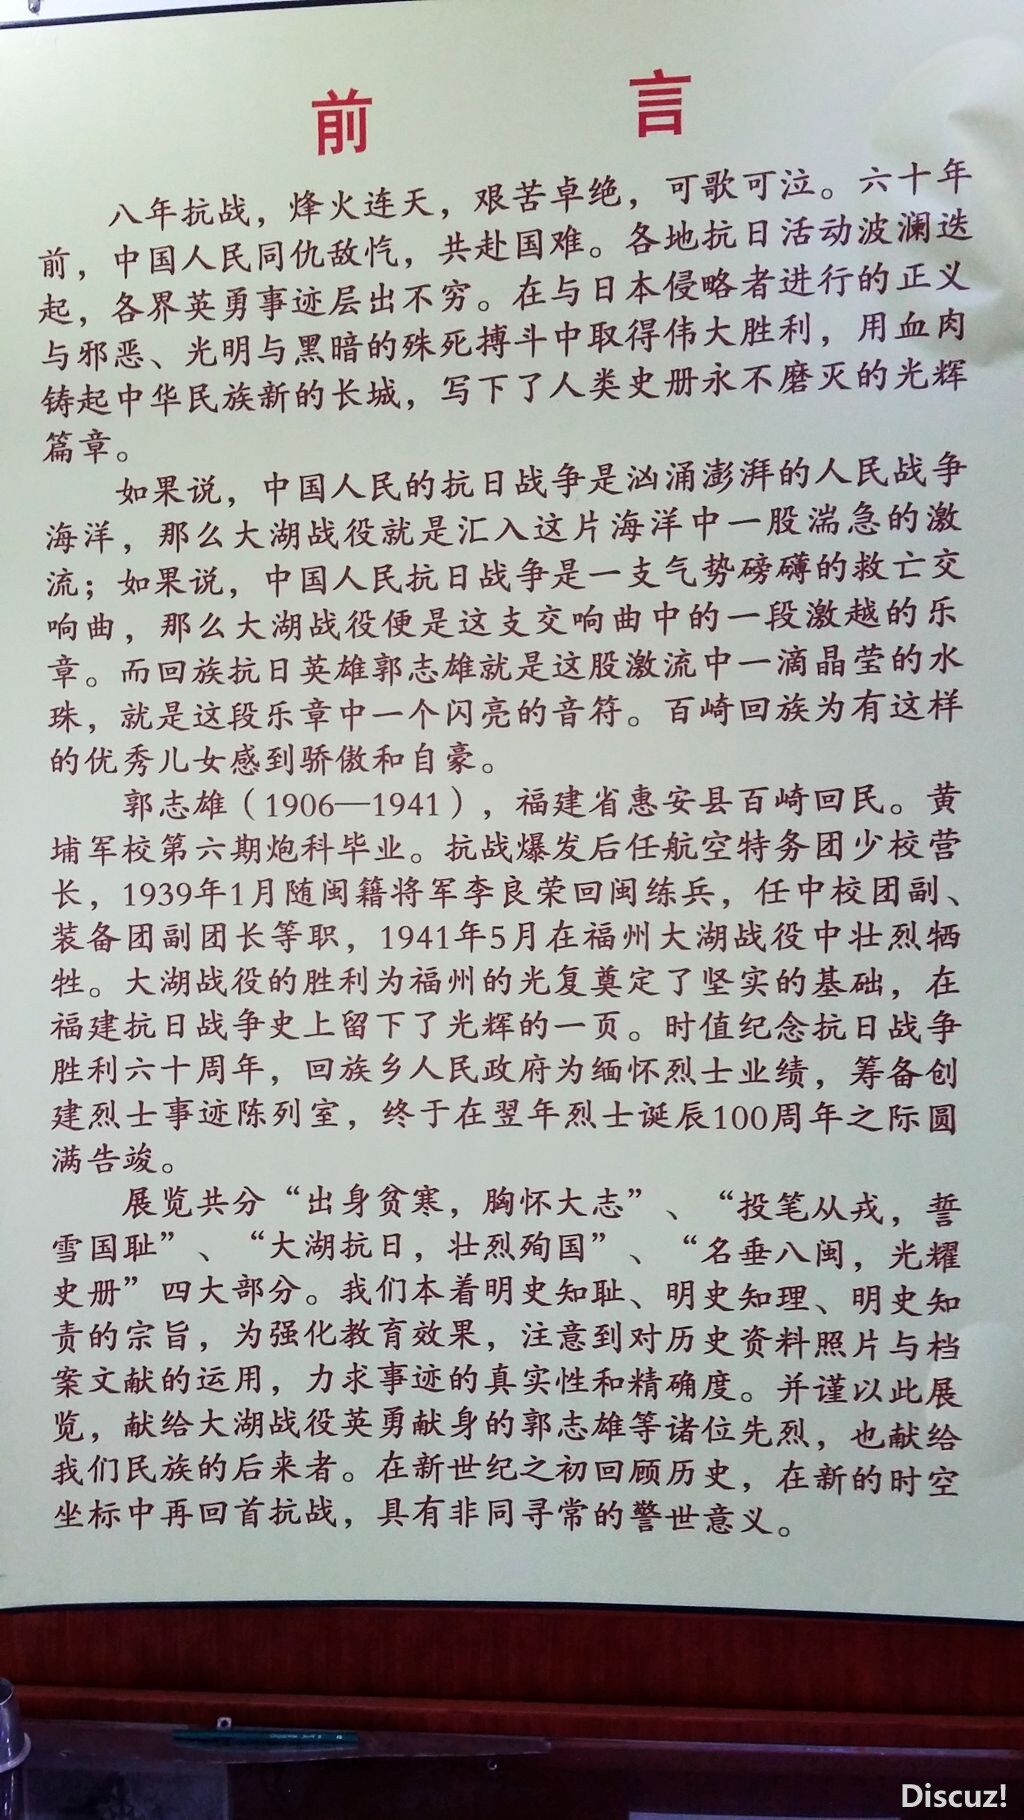 前 言
八年抗战，烽火连天，艰苦卓绝，可歌可泣。六十年
前，中国人民同仇敌忾，共赴国难。各地抗日活动波澜迭
起，各界英勇事迹层出不穷。在与日本侵略者进行的正义
与邪恶、光明与黑暗的殊死搏斗中取得伟大胜利，用血肉
铸起中华民族新的长城，写下了人类史册永不磨灭的光辉
篇章。
如果说，中国人民的抗日战争是汹涌澎湃的人民战争
海洋，那么大湖战役就是汇入这片海洋中一股湍急的激
流；如果说，中国人民抗日战争是一支气势磅礴的救亡交
响曲，那么大湖战役便是这支交响曲中的一段激越的乐
章。而回族抗日英雄郭志雄就是这股激流中一滴晶莹的水
珠，就是这段乐章中一个闪亮的音符。百崎回族为有这样
的优秀儿女感到骄傲和自豪。
郭志雄（1906—1941），福建省惠安县百崎回民。黄
埔军校第六期炮科毕业。抗战爆发后任航空特务团少校营
长，1939年1月随闽籍将军李良荣回闽练兵，任中校团副、
装备团副团长等职，1941年5月在福州大湖战役中壮烈牺
牲。大湖战役的胜利为福州的光复奠定了坚实的基础，在
福建抗日战争史上留下了光辉的一页。时值纪念抗日战争
胜利六十周年，回族乡人民政府为缅怀烈士业绩，筹备创
建烈士事迹陈列室，终于在翌年烈士诞辰100周年之际圆
满告竣。
展览共分“出身贫寒，胸怀大志”、“投笔从戎，誓
雪国耻”、“大湖抗日，壮烈殉国”、“名垂八闽，光耀
史册”四大部分。我们本着明史知耻、明史知理、明史知
责的宗旨，为强化教育效果，注意到对历史资料照片与档
案文献的运用，力求事迹的真实性和精确度。并谨以此展
览，献给大湖战役英勇献身的郭志雄等诸位先烈，也献给
我们民族的后来者。在新世纪之初回顾历史，在新的时空
坐标中再回首抗战，具有非同寻常的警世意义。
Discuz!